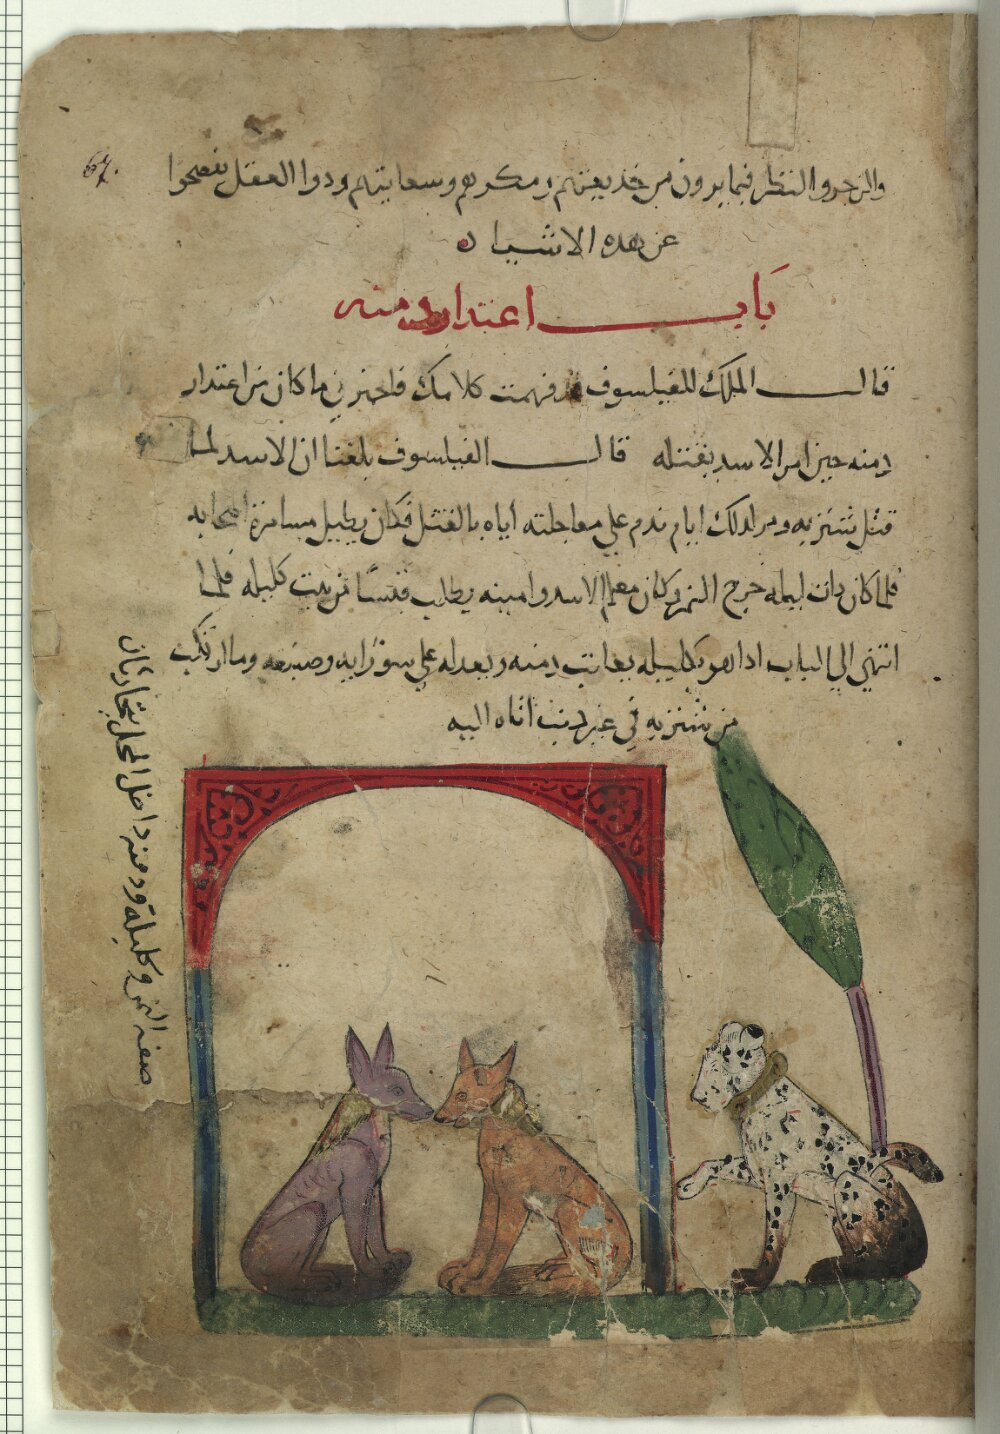 والزجر والنظر فيما يرون من خديعتهم ومكرهم وسعايتهم ودوا العقل يفحصوا
عن هده الاشيا ه
باب اعتدار دمنه
قال الملك للفيلسوف قد فهمت كلامك فاخبرني ما كان من اعتدار
دمنه حين امر الاسد بقتله قال الفيلسوف بلغنا ان الاسد لما
قتل شنزبه ومر لدلك ايام ندم علي معاجلته اياه بالقتل فكان يطيل مسامرة اصحابه
فلما كان دات ليله خرج النمر وكان معلم الاسد وامينه يطلب قبسًا من بيت كليله فلما
انتهي الي الباب ادا هو بكليله يعاتب دمنه ويعدله علي سو رايه وصنيعه وما ارتكب
من شنزبه في غير دنب اتاه اليه
صفة النمر وكليلة ودمنه داخل المحل يتحادثان
67.